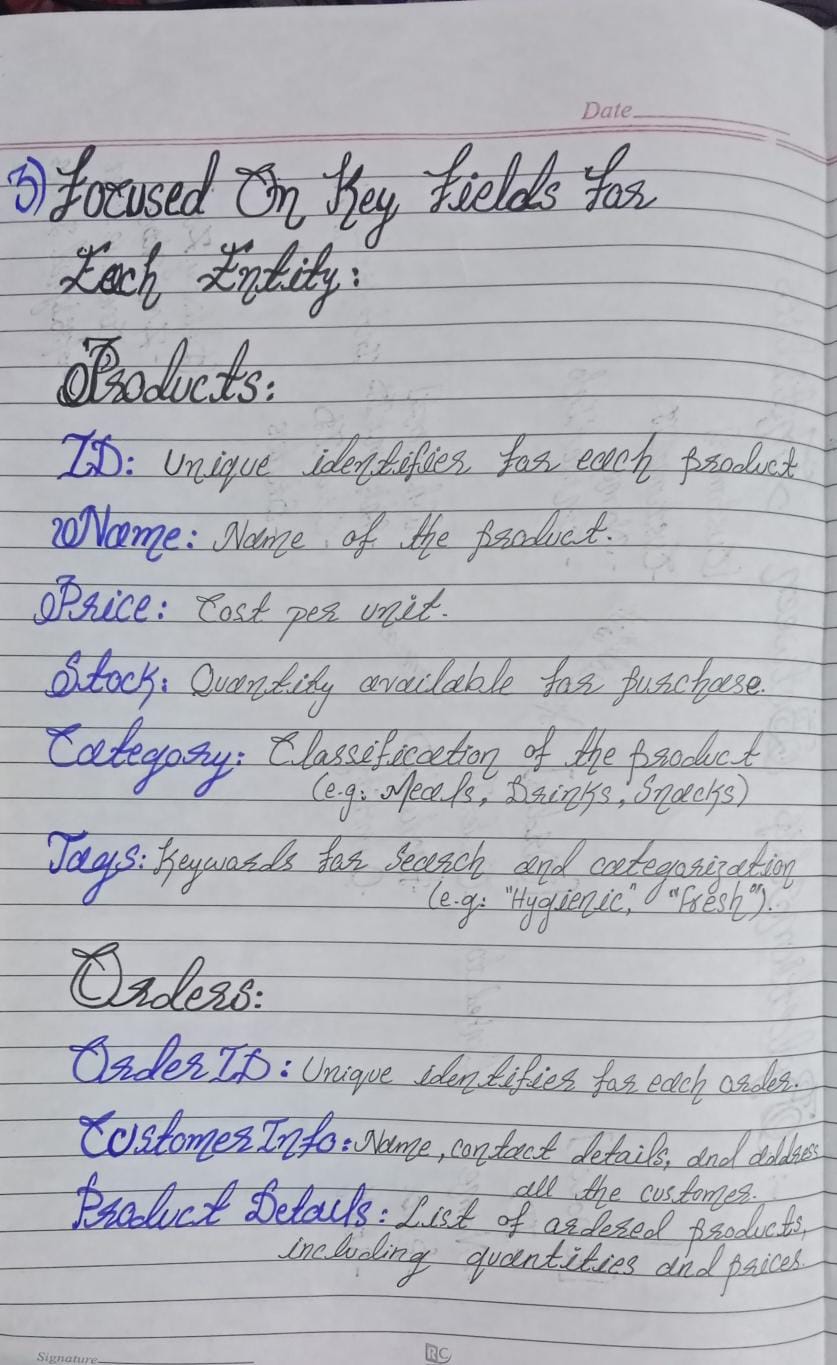 Date
3) Focused On Key Fields For
Each Entity:
Products:
ID: Unique identifier for each product
Name: Name of the product.
Price: Cost per unit.
Stock: Quantity available for purchase.
Category: Classification of the product
(e.g: Meals, Drinks, Snacks)
Tags: Keywords for Search and categorization
(e.g: "Hygienic", "Fresh").
Orders:
Order ID: Unique identifier for each order.
Customer Info: Name, contact details, and address
all the customer.
Product Details: List of ordered products,
including quantities and prices.
Signature
RC